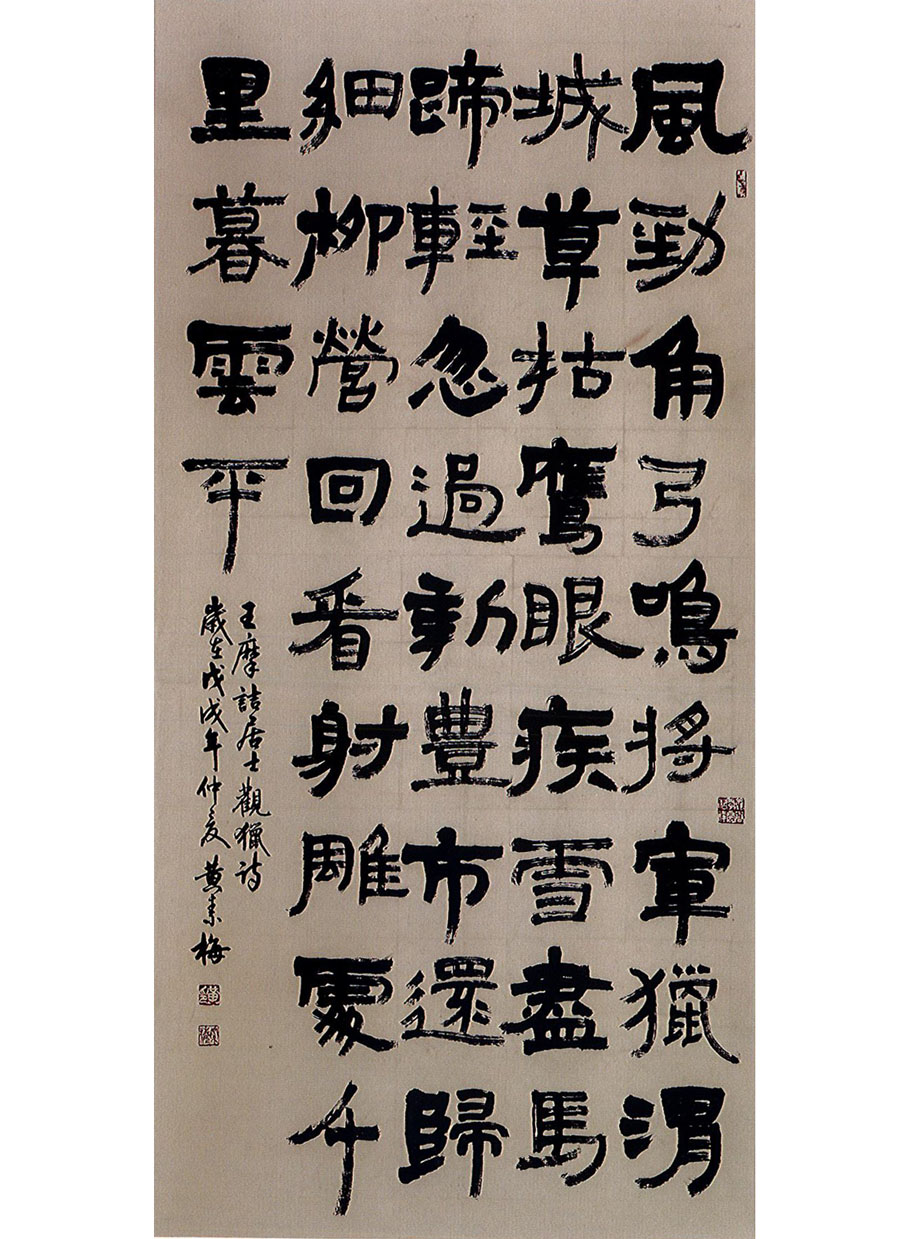 風勁角弓鳴將軍獵渭
城草枯鷹眼疾雪盡馬
蹄輕忽過新豐市還歸
細柳營回看射雕處千
里暮雲平
王摩詰居士觀獵詩
歲在戊戌年仲夏黃素梅